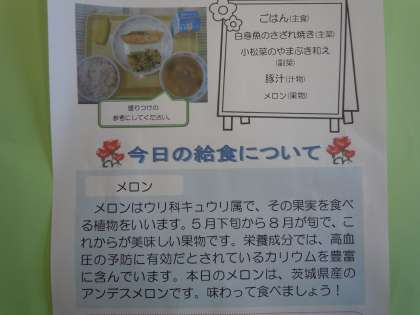 ごはん(主食)
白身魚のさざれ焼き(主菜)
小松菜のやまぶき和え
(副菜)
豚汁(汁物)
メロン(果物)
盛りつけの
参考にしてください。
今日の給食について
メロン
メロンはウリ科キュウリ属で、その果実を食べ
る植物をいいます。5月下旬から8月が旬で、こ
れからが美味しい果物です。栄養成分では、高血
圧の予防に有効だとされているカリウムを豊富
に含んでいます。本日のメロンは、茨城県産の
アンデスメロンです。味わって食べましょう!